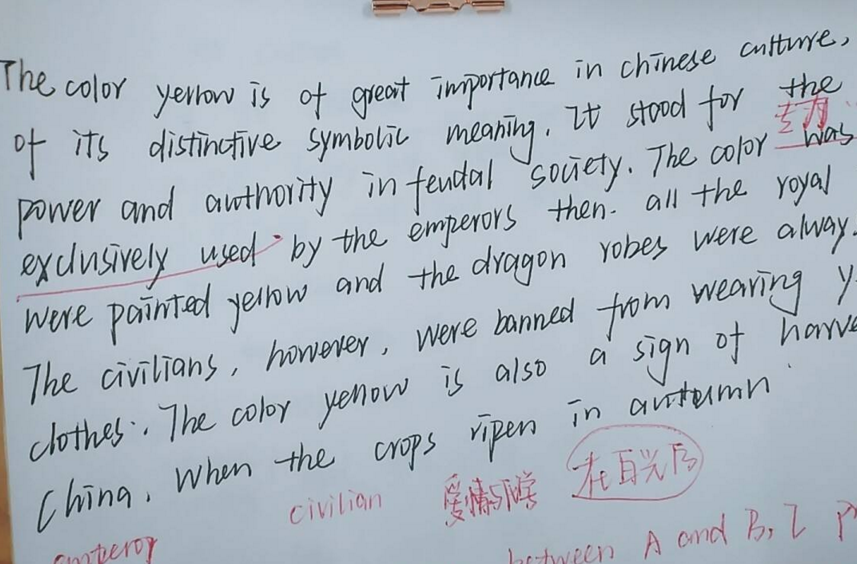 The color yellow is of great importance in chinese culture,
of its distinctive symbolic meaning. It stood for the
专为
power and authority in feudal society. The color was
exclusively used by the emperors then. all the royal
were painted yellow and the dragon robes were alway
The civilians, however, were banned from wearing y
clothes. The color yellow is also a sign of harve
China, when the crops ripen in autumn
civilian
emperor
between A and B, Z P